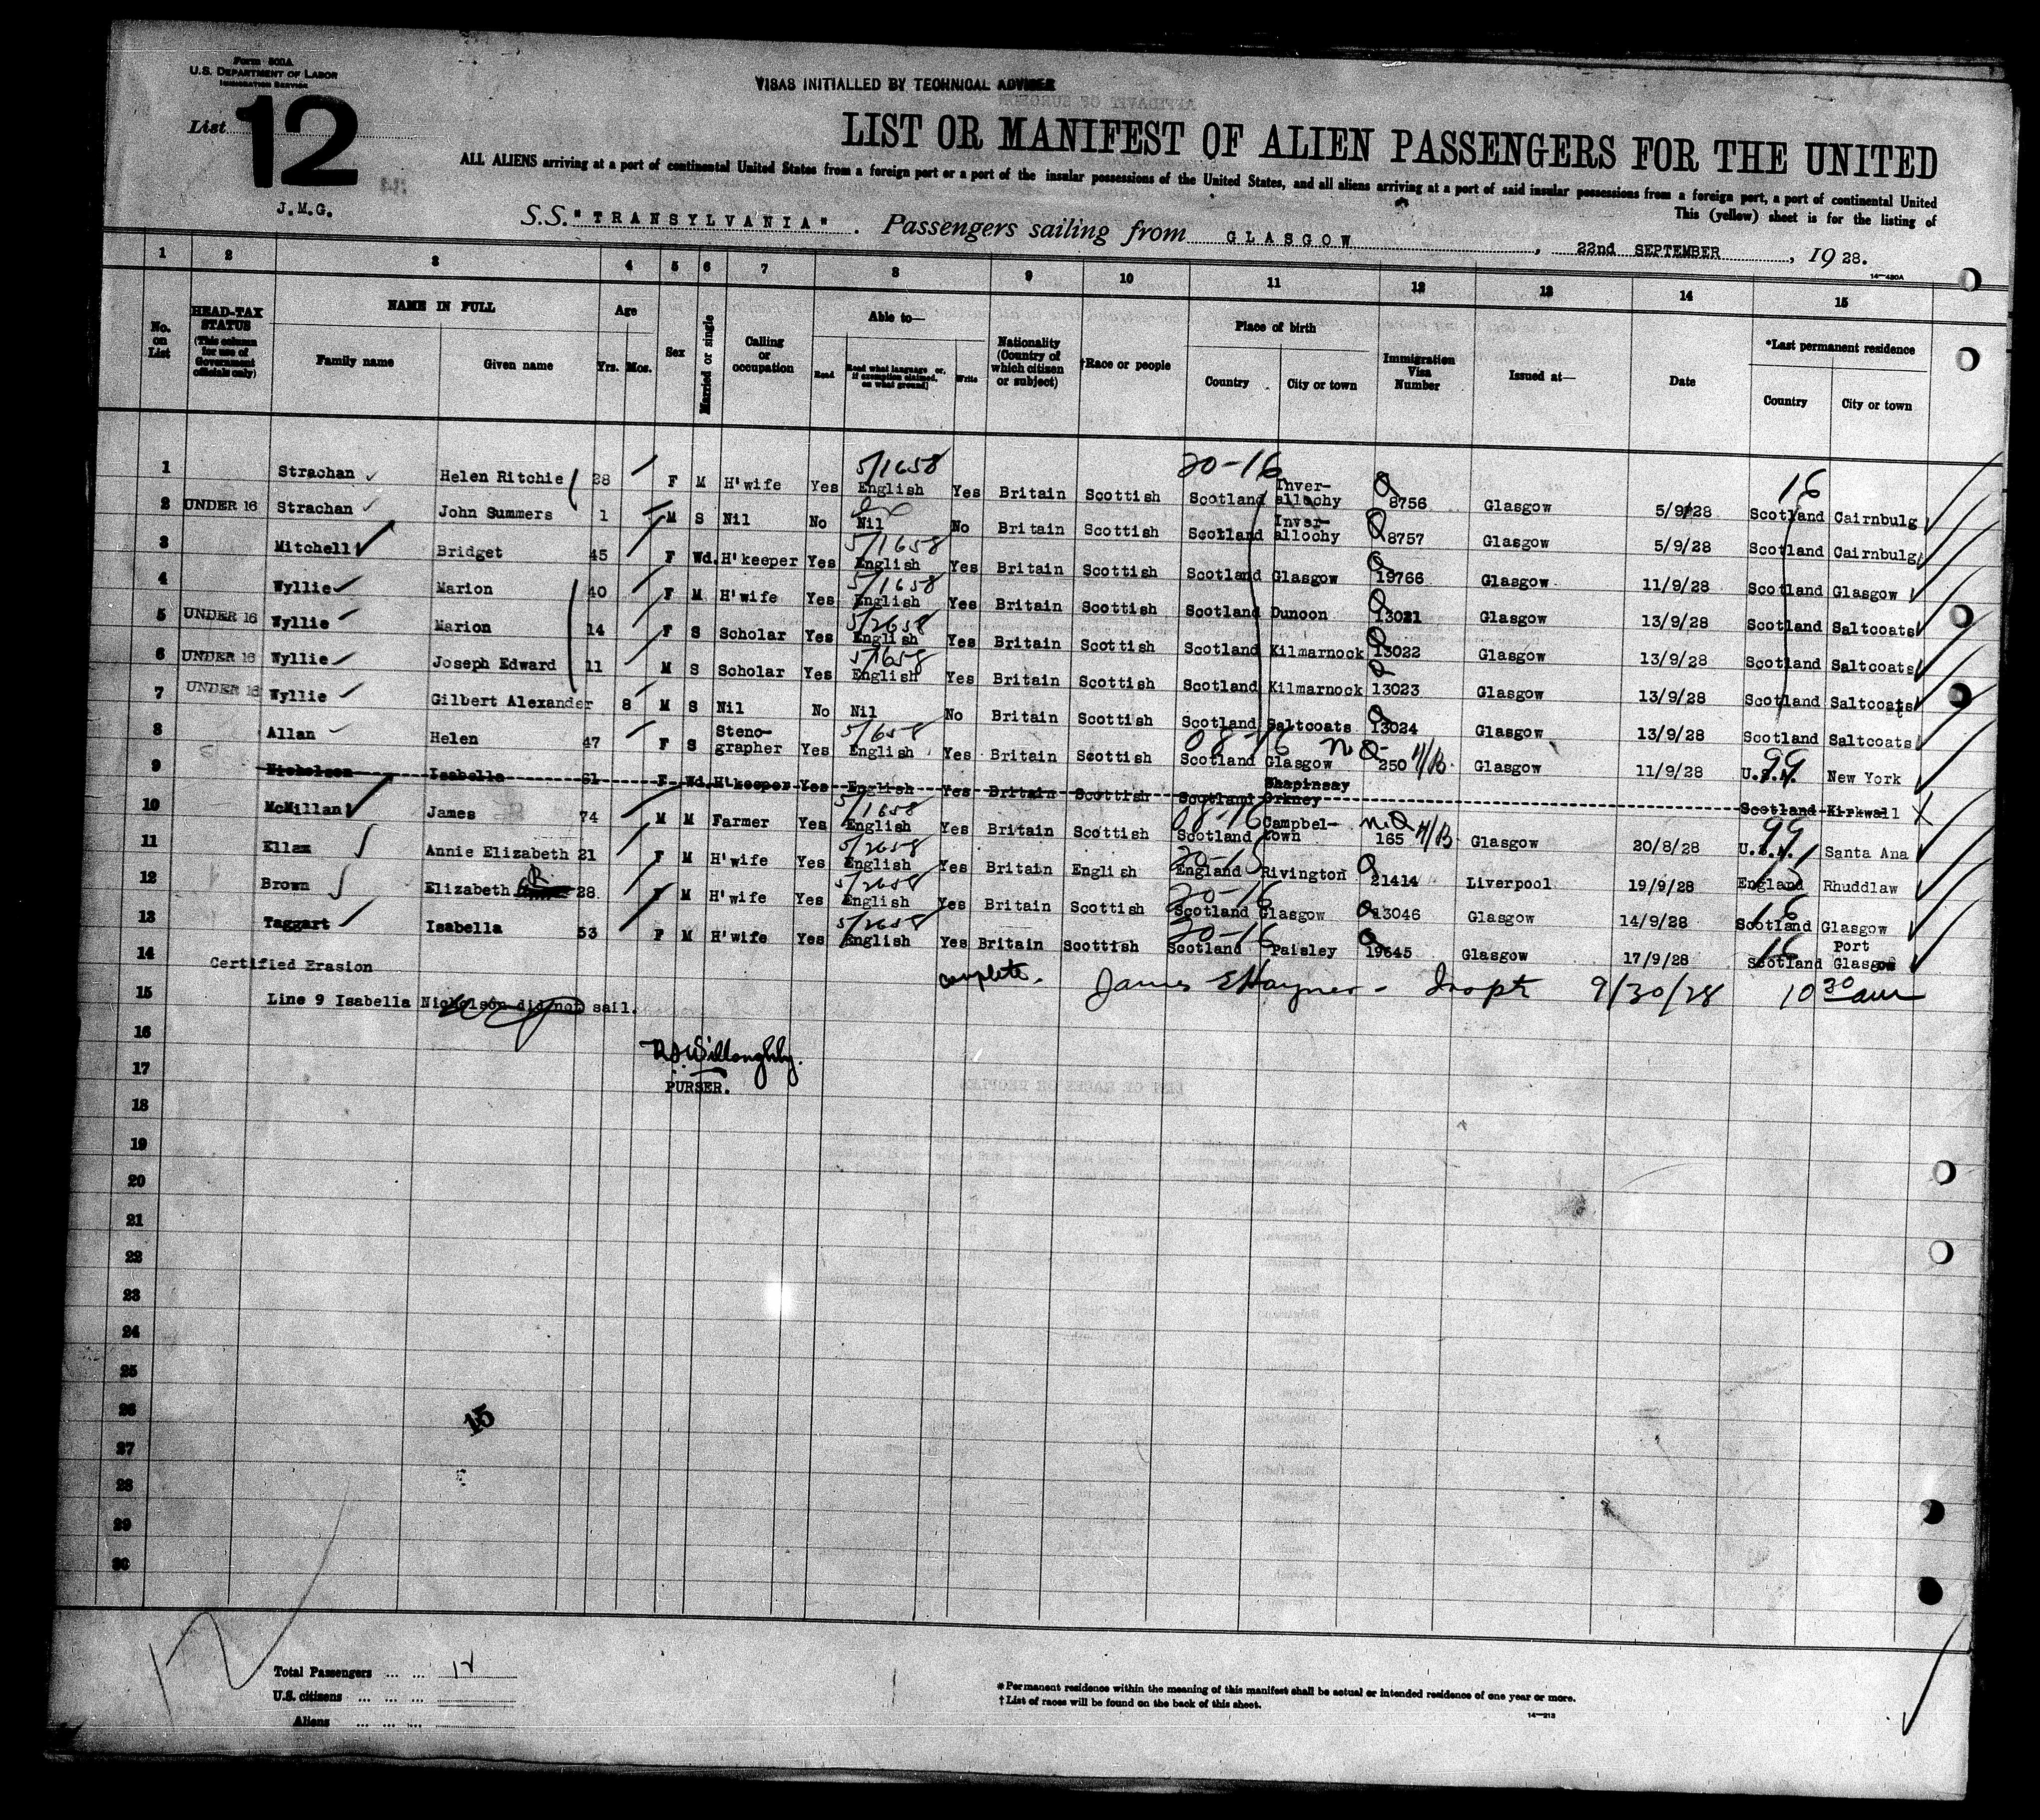 Form 500A
U.S. DEPARTMENT OF LABOR
IMMIGRATION SERVICE
VISAS INITIALLED BY TECHNICAL ADVISER
List 12
J.M.G.
LIST OR MANIFEST OF ALIEN PASSENGERS FOR THE UNITED
ALL ALIENS arriving at a port of continental United States from a foreign port or a port of the insular possessions of the United States, and all aliens arriving at a port of said insular possessions from a foreign port, a port of continental United
This (yellow) sheet is for the listing of
S.S. "TRANSYLVANIA". Passengers sailing from GLASGOW, 22nd SEPTEMBER, 1928.
14—480A
1 2 3 4 5 6 7 8 9 10 11 12 13 14 15
No. on List
HEAD-TAX STATUS (This column for use of Government officials only)
NAME IN FULL
Family name Given name
Age
Yrs. Mos.
Sex
Married or single
Calling or occupation
Able to—
Read Read what language or, if exemption claimed, on what ground Write
Nationality (Country of which citizen or subject)
†Race or people
Place of birth
Country City or town
Immigration Visa Number
Issued at—
Date
*Last permanent residence
Country City or town
5/1658 20-16 16
1 Strachan Helen Ritchie 28 F M H'wife Yes English Yes Britain Scottish Scotland Inver-allochy Q 8756 Glasgow 5/9/28 Scotland Cairnbulg
2 UNDER 16 Strachan John Summers 1 M S Nil No Nil No Britain Scottish Scotland Inver-allochy Q 8757 Glasgow 5/9/28 Scotland Cairnbulg
5/1658
3 Mitchell Bridget 45 F Wd. H'keeper Yes English Yes Britain Scottish Scotland Glasgow Q 19766 Glasgow 11/9/28 Scotland Glasgow
5/1658
4 Wyllie Marion 40 F M H'wife Yes English Yes Britain Scottish Scotland Dunoon Q 13021 Glasgow 13/9/28 Scotland Saltcoats
5/2658
5 UNDER 16 Wyllie Marion 14 F S Scholar Yes English Yes Britain Scottish Scotland Kilmarnock Q 13022 Glasgow 13/9/28 Scotland Saltcoats
6 UNDER 16 Wyllie Joseph Edward 11 M S Scholar Yes English Yes Britain Scottish Scotland Kilmarnock Q 13023 Glasgow 13/9/28 Scotland Saltcoats
7 UNDER 16 Wyllie Gilbert Alexander 8 M S Nil No Nil No Britain Scottish Scotland Saltcoats Q 13024 Glasgow 13/9/28 Scotland Saltcoats
5/1658 08-16 99
8 Allan Helen 47 F S Steno-grapher Yes English Yes Britain Scottish Scotland Glasgow NQ 250 4/B Glasgow 11/9/28 U.S.A. New York
9 Nicholson Isabella 61 F Wd. H'keeper Yes English Yes Britain Scottish Scotland Shapinsay Orkney Scotland Kirkwall X
5/1658 08-16 99
10 McMillan James 74 M M Farmer Yes English Yes Britain Scottish Scotland Campbel-town NQ 165 4/B Glasgow 20/8/28 U.S.A. Santa Ana
5/2658 20-15 15
11 Ellam Annie Elizabeth 21 F M H'wife Yes English Yes Britain English England Rivington Q 21414 Liverpool 19/9/28 England Rhuddlaw
5/2658 20-16 16
12 Brown Elizabeth R 28 F M H'wife Yes English Yes Britain Scottish Scotland Glasgow Q 13046 Glasgow 14/9/28 Scotland Glasgow
5/2658 20-16 16
13 Taggart Isabella 53 F M H'wife Yes English Yes Britain Scottish Scotland Paisley Q 19645 Glasgow 17/9/28 Scotland Port Glasgow
14 Certified Erasion
Complete. James E Haynes - Inspt 9/30/28 10 30 am
15 Line 9 Isabella Nicholson did not sail.
16
R.S. Willoughby.
17 PURSER.
18
19
20
21
22
23
24
25
26
15
27
28
29
30
12
Total Passengers ... ... 12
U.S. citizens ... ... ...
Aliens ... ... ...
*Permanent residence within the meaning of this manifest shall be actual or intended residence of one year or more.
†List of races will be found on the back of this sheet.
14—213